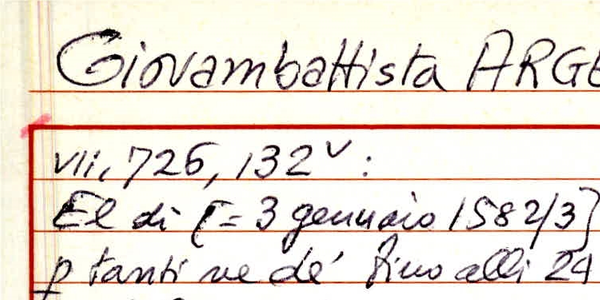 Giovambattista ARGE
VII, 726, 132v :
El dì [= 3 gennaio 1582/3]
p tanti ne de' fino alli 24